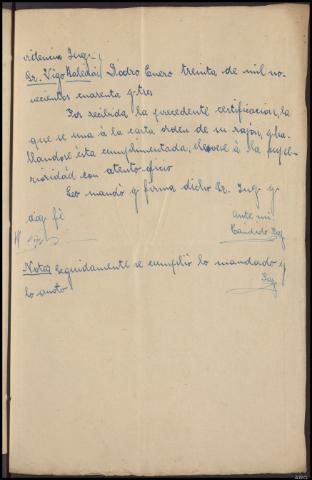 videncia Juez
Sr. Vigo Maledo Padro Enero treinta de mil no-
vecientos cuarenta y tres
Por recibida la precedente certificacion, la
que se una á la carta orden de su razon, y ha-
llandose ésta cumplimentada, elevese á la supe-
rioridad con atento oficio
Lo mandó y firma dicho Sr. Juez y
doy fé
Ante mi
Candido
Nota Seguidamente se cumplió lo mandado y
lo anoto